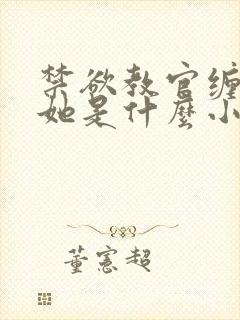 禁欲教官缠
她是什麼小
董憲超